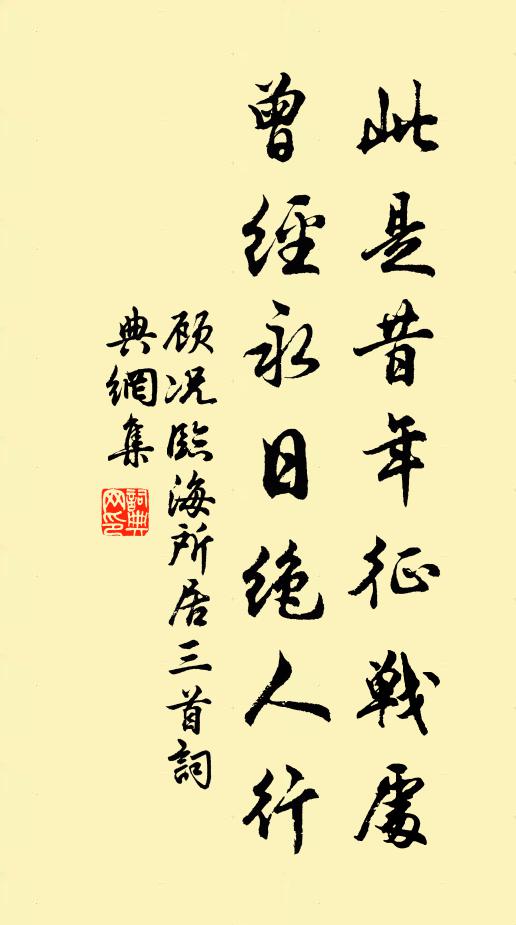 此是昔年征戰處
曾經永日絶人行
顧况臨海所居三首詞
典網集
詞典
网印